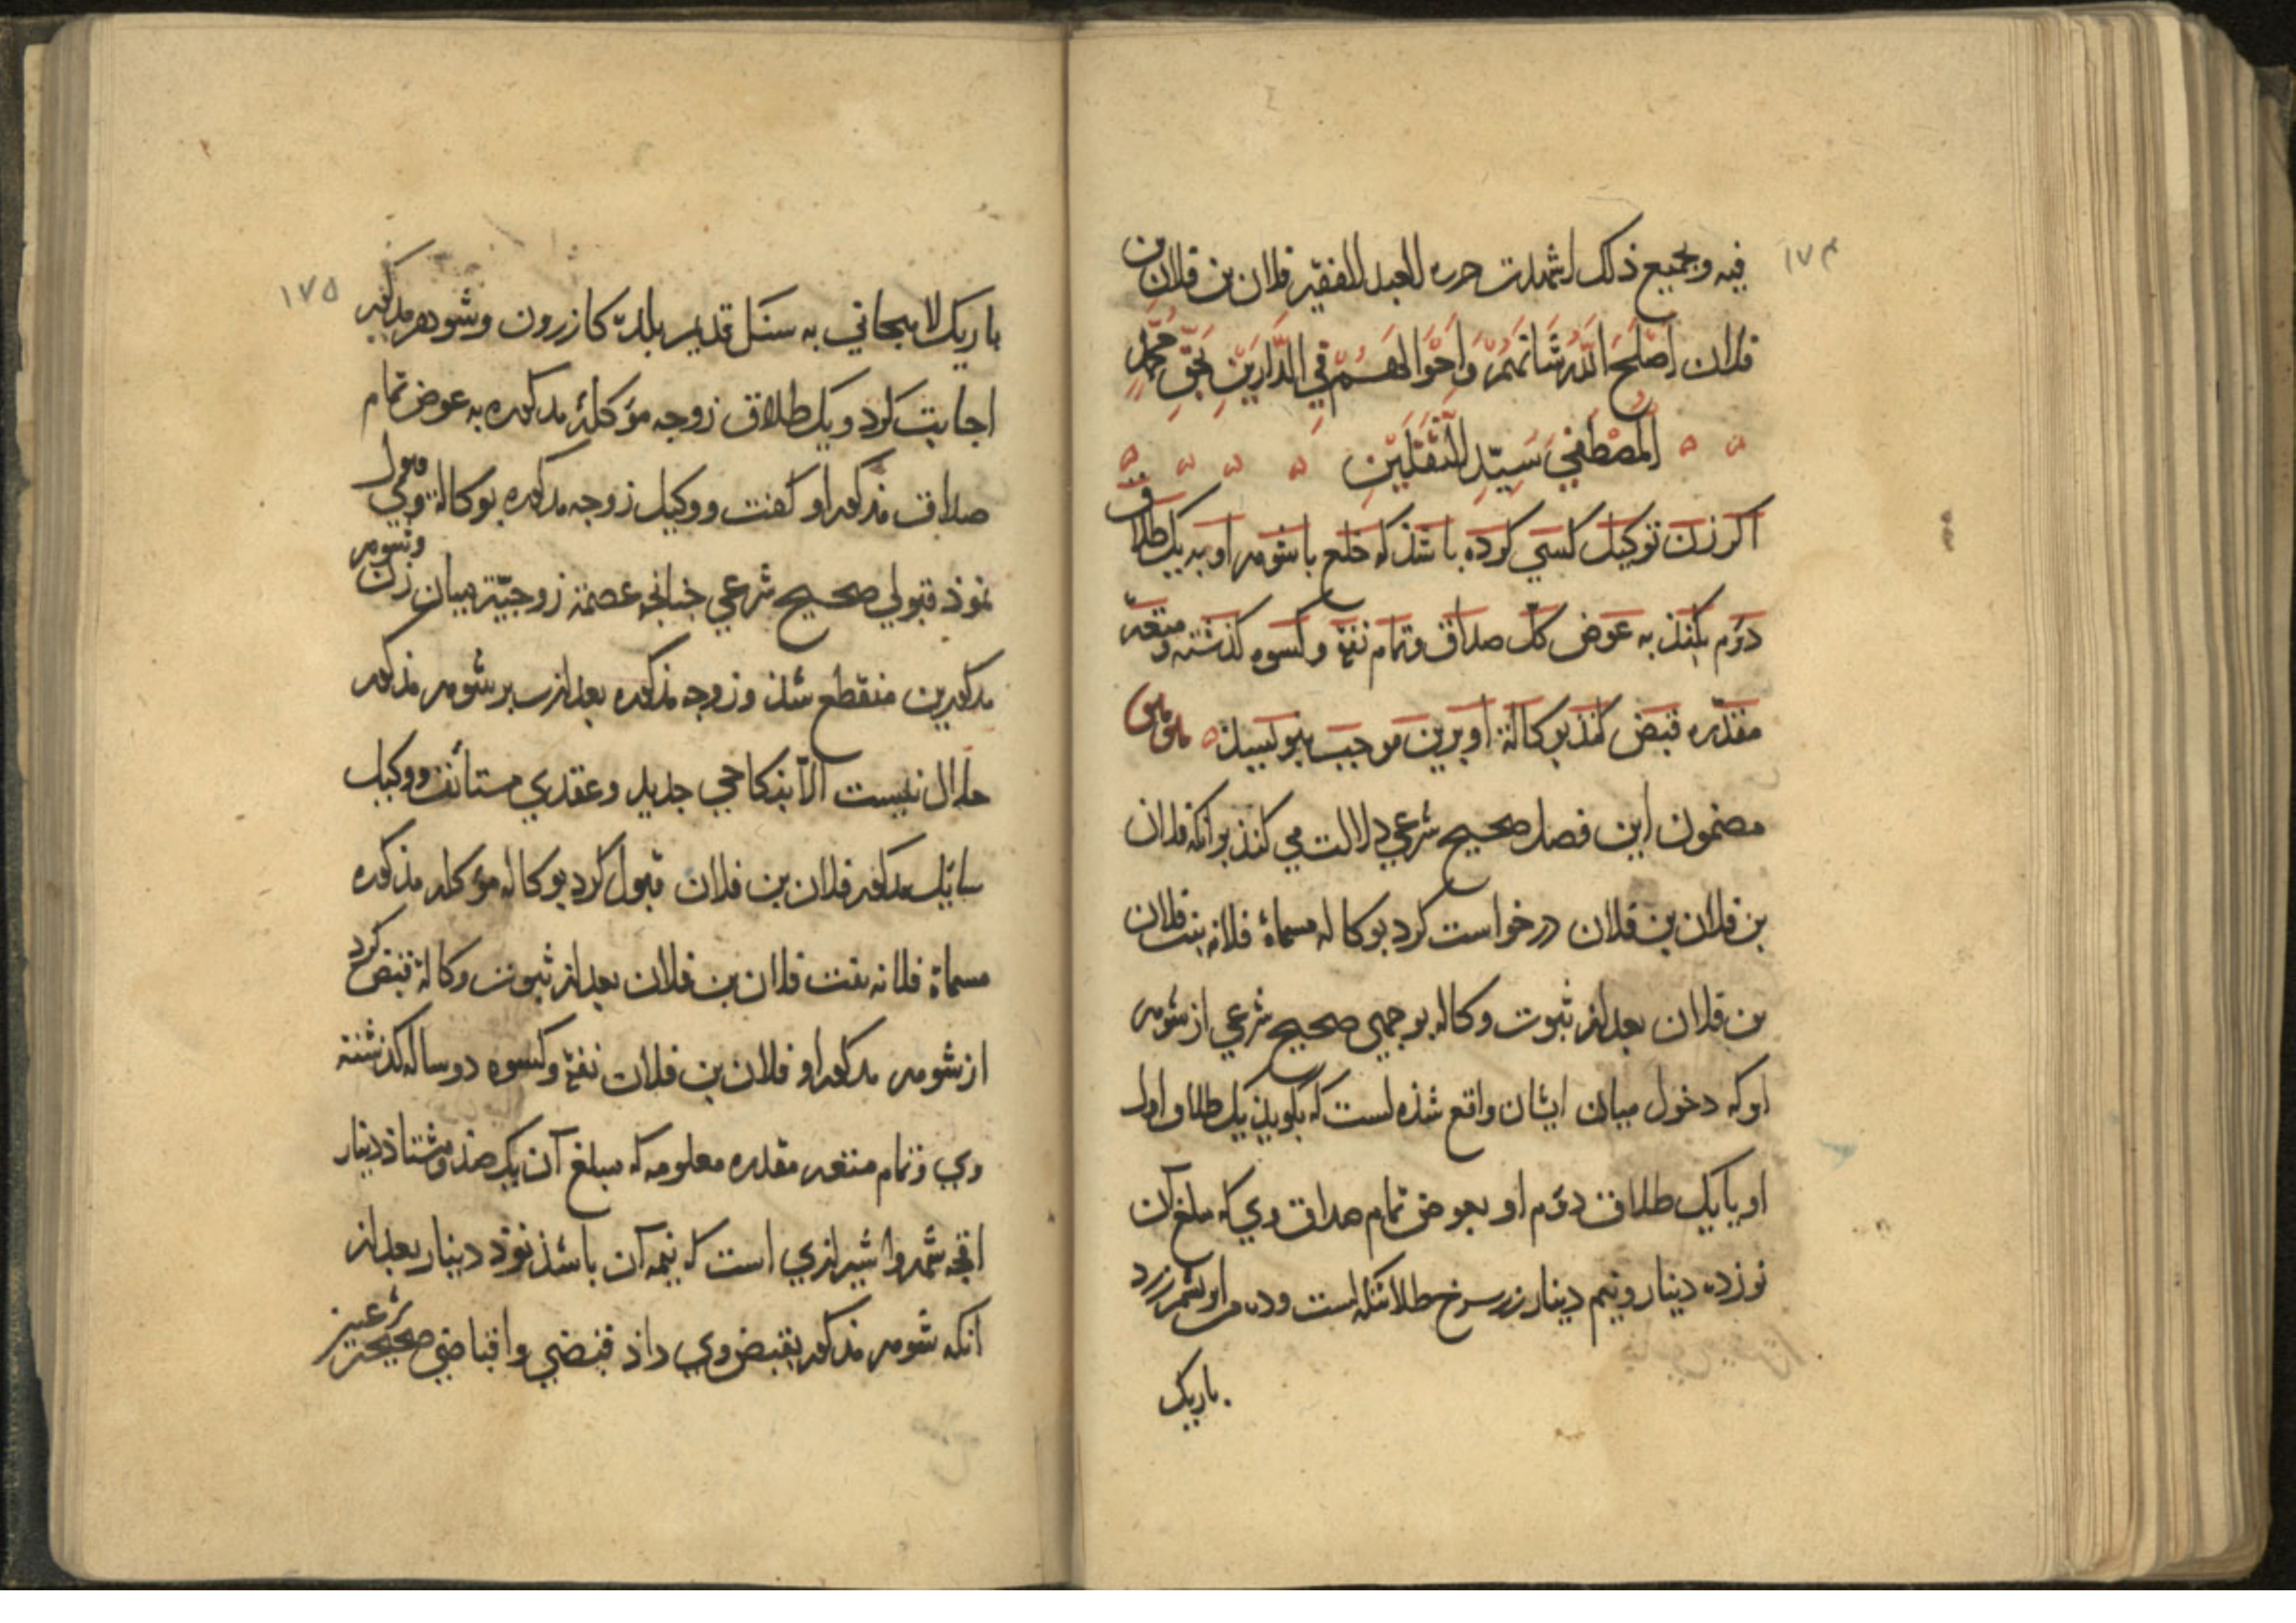 ١٧٤
فیه وبجمیع ذلک اشهدت حرره العبد الفقیر فلان بن فلان بن
فلان اَصْلَحَ اللّٰهُ شَانَهُمْ وَاَحْوَالَهُمْ فِي الدَّارَيْنِ بِحَقِّ مُحَمَّدٍ
الْمُصْطَفَي سَيِّدِ الثَّقَلَيْنِ
اکر زن توکیل کسي کرده باشذ که خلع با شوهر او بدیک طلاق
دوّم بکنذ به عوض کل صداق وتمام نفقة وکسوه کذشته ومتعهٔ
مقدّره قبض کنذ بوکالة او برین موجب بنویسیذ
مضمون این فصل صحیح شرعي دلالت مي کنذ بر انکه فلان
بن فلان بن فلان درخواست کرد بوکاله مسماة فلانه بنت فلان
بن فلان بعد از ثبوت وکاله بوجهی صحیح شرعي از شوهر
او که دخول میان ایشان واقع شذه است که بکویذ یک طلاق اول
او یا یک طلاق دوّم او بعوض تمام صداق وي که مبلغ آن
نوزده دینار ونیم دینار زر سرخ طلا تنکه است وده من ابریشم زرد
باریک
١٧٥
باریک لاهیجاني به سنک قدیم بلدهٔ کازرون وشوهر مذکور
اجابت کرد ویک طلاق زوجه مؤکلهٔ مذکوره به عوض تمام
صداق مذکور او کفت ووکیل زوجه مذکوره بوکالة وي قبول
نموذ قبولي صحیح شرعي جنانجه عصمة زوجیّة میان زن وشوهر
مذکورین منقطع شذ وزوجه مذکوره بعد ازین بر شوهر مذکور
حلال نیست الّا بنکاحي جدید وعقدي مستأنف ووکیل
سایل مذکور فلان بن فلان قبول کرد بوکاله مؤکله مذکوره
مسماة فلانه بنت فلان بن فلان بعد از ثبوت وکالة قبض کرد
از شوهر مذکور او فلان بن فلان نفقة وکسوه دو ساله کذشته
وي وتمام متعه مقدره معلومه که مبلغ آن یک صذ وهشتاذ دینار
اقجه شمروا شیرازي است که نیمه آن باشذ نوذ دینار بعد از
انکه شوهر مذکور بقبض وي داذ قبضي واقباضي صحیحین شرعیین